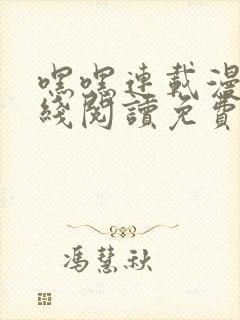 嘿嘿連載漫
綫閱讀免費
馮慧秋